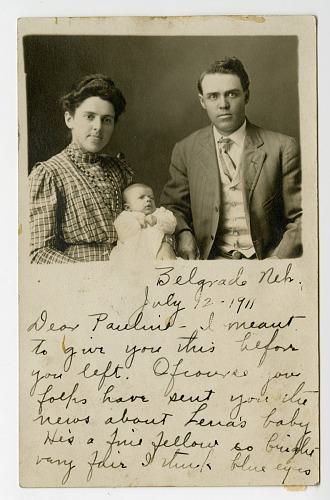 Belgrade Neb.
July 12-1911
Dear Pauline - I meant
to give you this before
you left. Ofcourse your
folks have sent you the
news about Lena's baby
He's a fine fellow so bright
very fair I think blue eyes